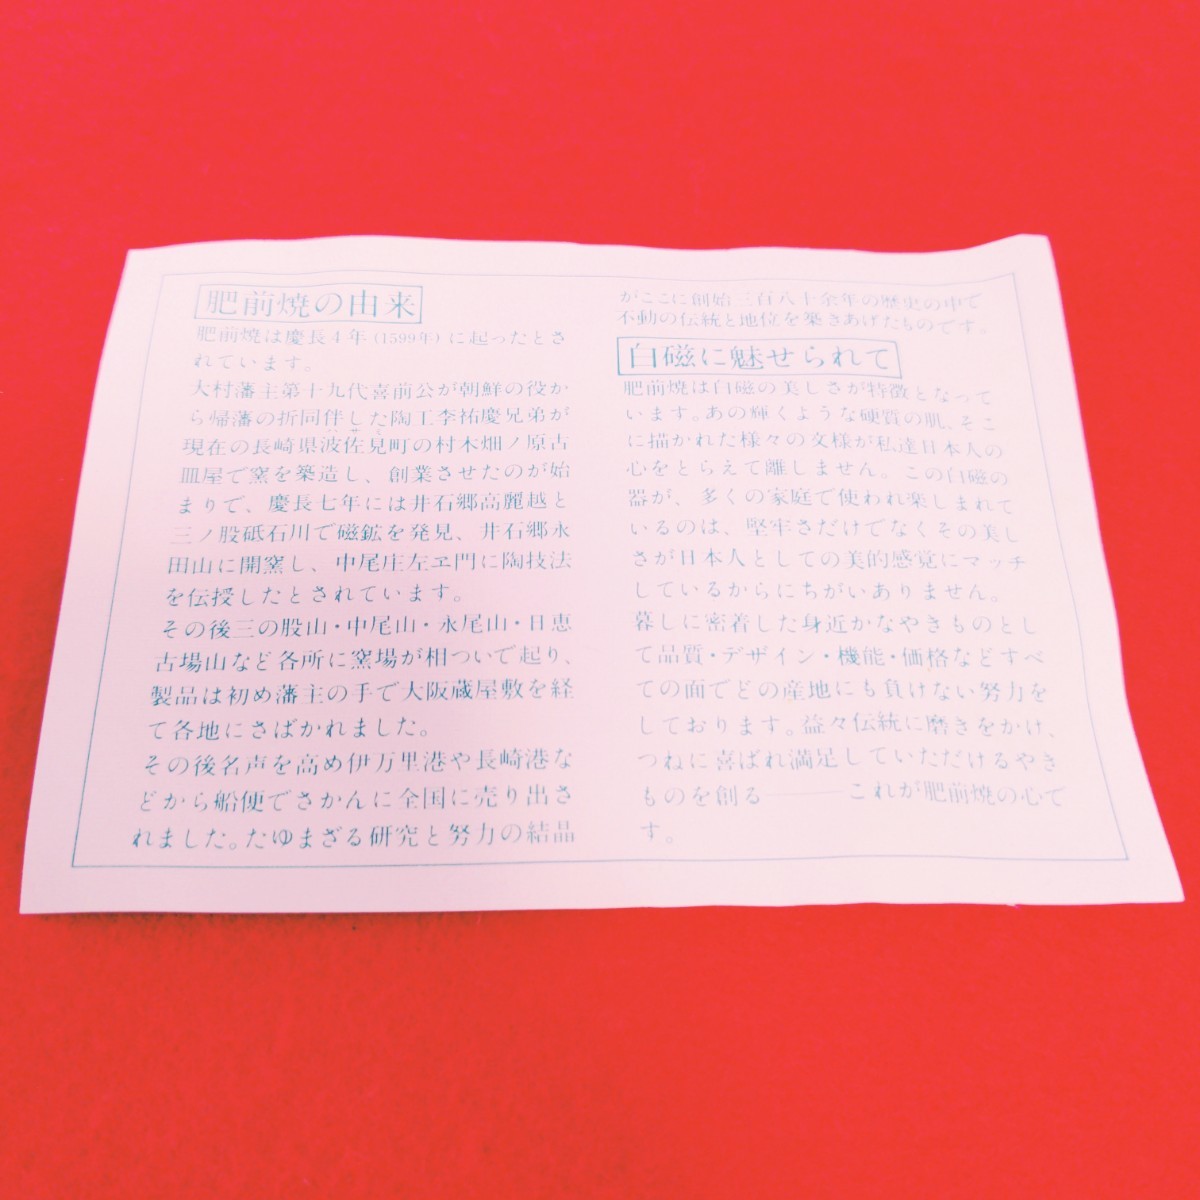 肥前焼の由来
肥前焼は慶長4年(1599年)に起ったとさ
れています。
大村藩主第十九代喜前公が朝鮮の役か
ら帰藩の折同伴した陶工李祐慶兄弟が
現在の長崎県波佐見町の村木畑ノ原古
皿屋で窯を築造し、創業させたのが始
まりで、慶長七年には井石郷高麗越と
三ノ股砥石川で磁鉱を発見、井石郷永
田山に開窯し、中尾庄左ヱ門に陶技法
を伝授したとされています。
その後三の股山・中尾山・永尾山・日恵
古場山など各所に窯場が相ついで起り、
製品は初め藩主の手で大阪蔵屋敷を経
て各地にさばかれました。
その後名声を高め伊万里港や長崎港な
どから船便でさかんに全国に売り出さ
れました。たゆまざる研究と努力の結晶
がここに創始三百八十余年の歴史の中で
不動の伝統と地位を築きあげたものです。
白磁に魅せられて
肥前焼は白磁の美しさが特徴となって
います。あの輝くような硬質の肌、そこ
に描かれた様々の文様が私達日本人の
心をとらえて離しません。この白磁の
器が、多くの家庭で使われ楽しまれて
いるのは、堅牢さだけでなくその美し
さが日本人としての美的感覚にマッチ
しているからにちがいありません。
暮しに密着した身近かなやきものとし
て品質・デザイン・機能・価格などすべ
ての面でどの産地にも負けない努力を
しております。益々伝統に磨きをかけ、
つねに喜ばれ満足していただけるやき
ものを創る───これが肥前焼の心で
す。